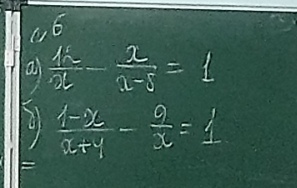 №6
а) 12/x - x/(x-8) = 1
б) (1-x)/(x+4) - 9/x = 1
=